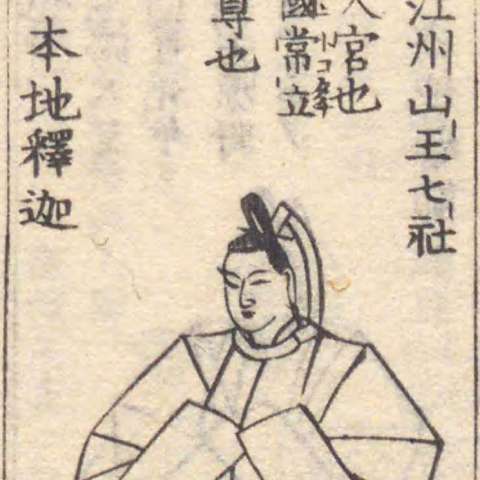 江州山王七社
大宮也
國常立
尊也
本地釋迦